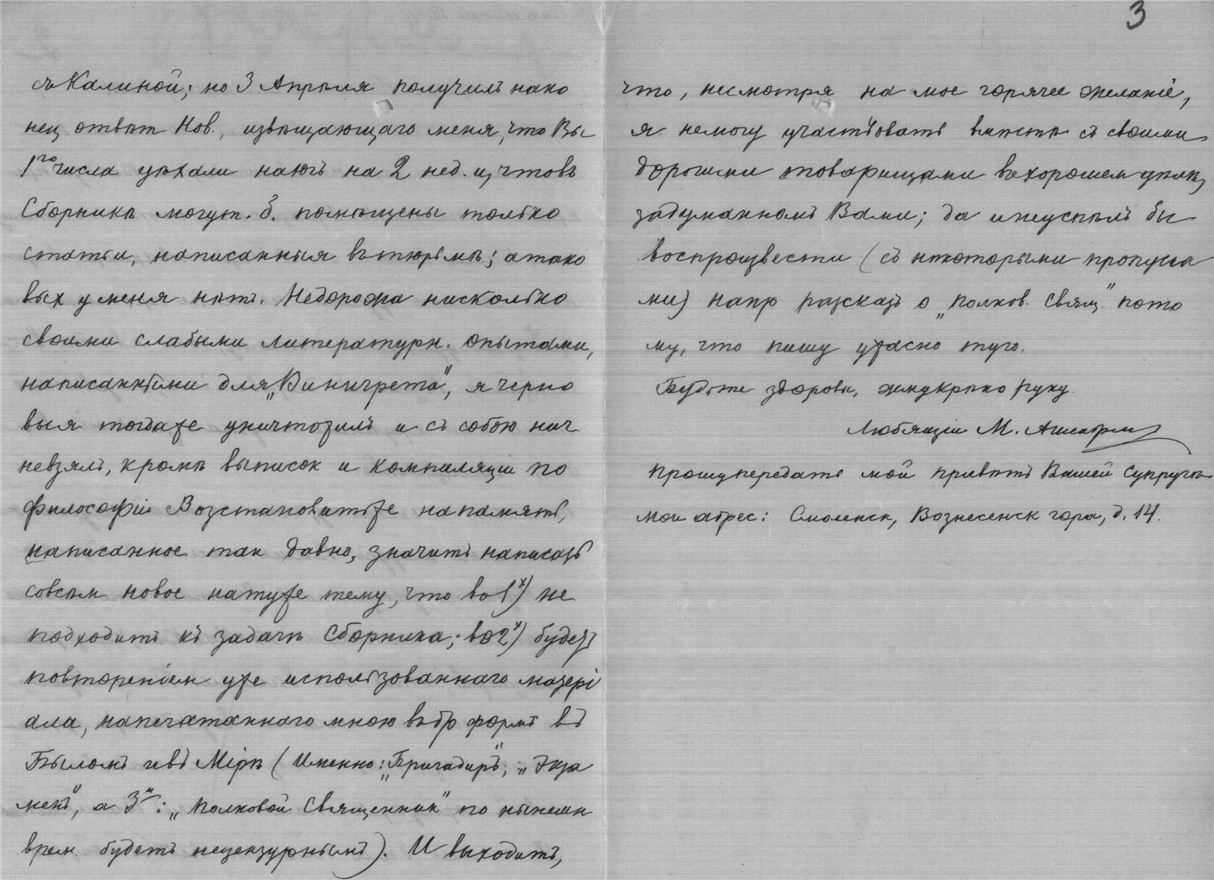 3
съ Калиной; но 3 Апрѣля получилъ нако
нец отвѣтъ Нов., извѣщающаго меня, что Вы
1го числа уѣхали на югъ на 2 нед. и, что въ
Сборникѣ могут. б. помѣщены только
статьи, написанныя въ тюрьмѣ; а тако
вых у меня нѣтъ. Недорожа нисколько
своими слабыми литературн. опытами,
написанными для „Винигрета", я черно
выя тогда же уничтожилъ и съ собою нич
невзялъ, кромѣ выписок и компиляціи по
философіи Возстановить же на память,
написанное так давно, значитъ написать
совсѣм новое на ту же тему, что во 1х) не
подходитъ къ задачѣ Сборника; во 2х) будетъ
повтореніем уже использованнаго матері
ала, напечатаннаго мною въ др формѣ въ
Быломъ и въ Мірѣ (Именно: „Бригадиръ", „Экза
менъ", а 3й: „Полковой Священник" по нынѣшн
врем будетъ нецензурнымъ). И выходитъ,
что, несмотря на мое горячее желаніе,
я немогу участвовать вмѣстѣ съ своими
дорогими товарищами въ хорошем дѣлѣ,
задуманном Вами; да и неуспѣлъ бы
воспроизвести (съ нѣкоторыми пропуска
ми) напр разсказъ о „полков. Свящ." пото
му, что пишу ужасно туго.
Будьте здоровы, жму крѣпко руку.
Любящій М.
Прошу передать мой привѣтъ Вашей Супругѣ
мой адрес: Смоленск, Вознесенск гора, д. 14.